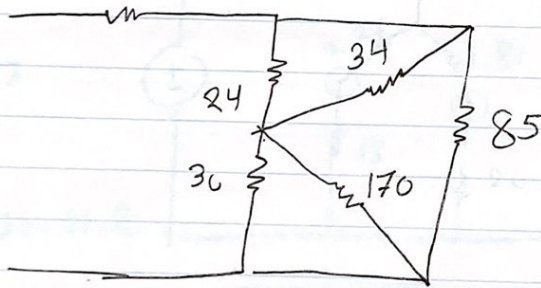 34
24
85
30
170